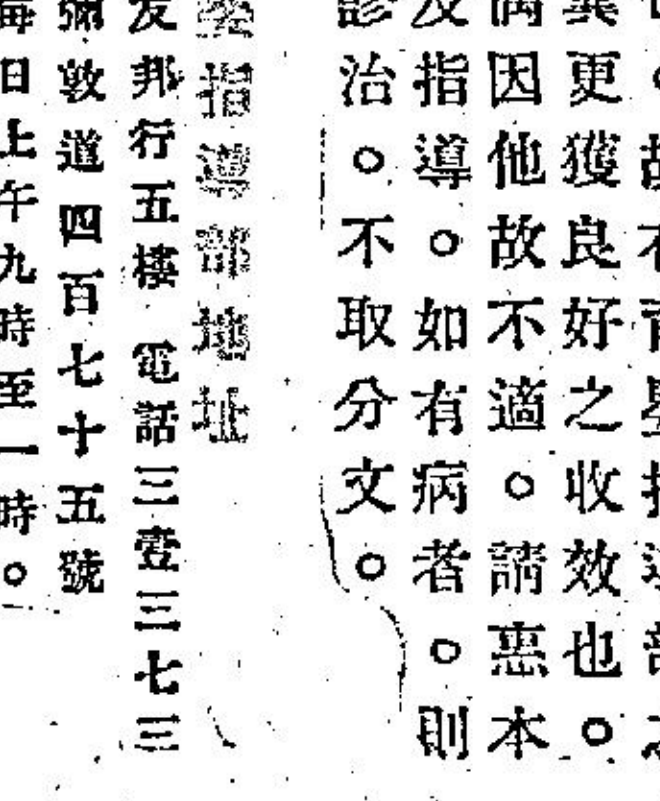 冀更獲良好之收效也。
偶因他故不適。請惠本
及指導。如有病者。則
診治。不取分文。
嬰指導部地址
友邦行五樓 電話三壹三七三
彌敦道四百七十五號
每日上午九時至一時。